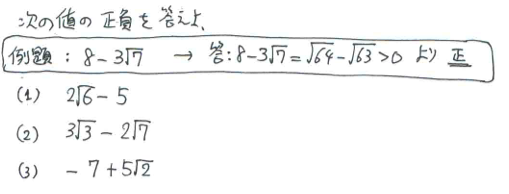 次の値の正負を答えよ.
例題 : 8 - 3√7 → 答: 8 - 3√7 = √64 - √63 > 0 より 正
(1) 2√6 - 5
(2) 3√3 - 2√7
(3) - 7 + 5√2